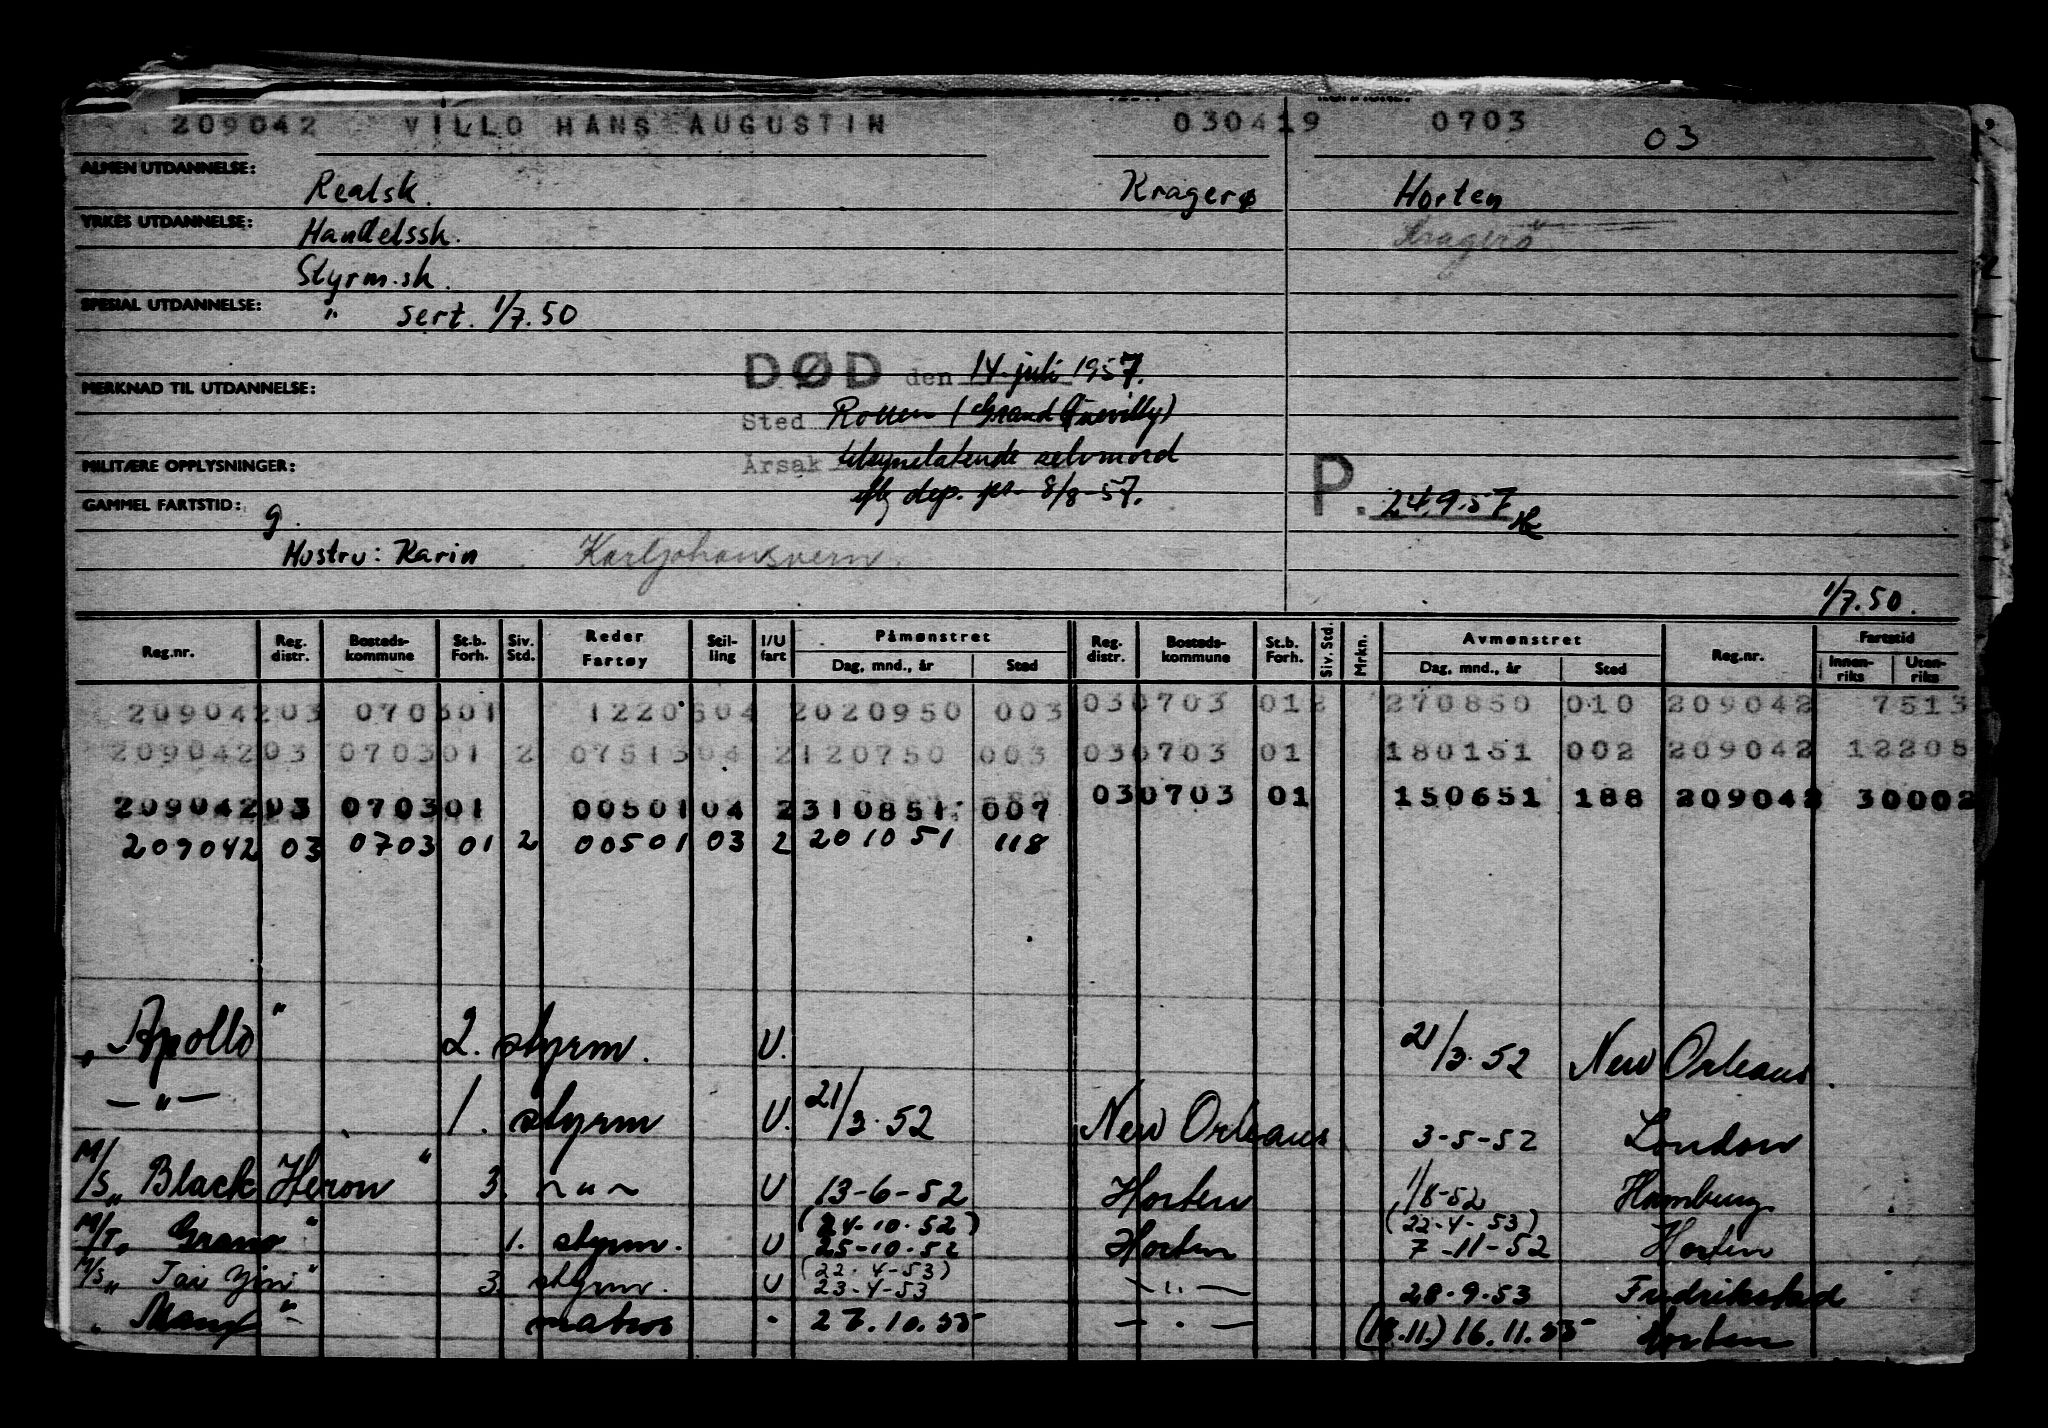 209042 VILLO HANS AUGUSTIN 030419 0703 03
ALMEN UTDANNELSE: Realsk. Kragerø Horten
YRKES UTDANNELSE: Handelssk. Kragerø
Styrm.sk.
SPESIAL UTDANNELSE: " sert. 1/7.50
DØD den 14. juli 1957.
MERKNAD TIL UTDANNELSE:
Sted Rouen (Grand Quevilly)
MILITÆRE OPPLYSNINGER: Årsak tilsynelatende selvmord
P. 24.9.57
GAMMEL FARTSTID: g. dep. 8/8-57.
Hustru: Karin Karljohansvern.
1/7.50.
Reg.nr. Reg. distr. Bosteds-kommune St.b. Forh. Siv. Std. Reder Fartøy Stil-ling I/U fart Påmønstret Dag, mnd., år Sted Reg. distr. Bosteds-kommune St.b. Forh. Siv. Std. Mrkn. Avmønstret Dag, mnd., år Sted Reg.nr. Fartstid Innen-riks Uten-riks
209042 03 0703 01 12206 04 2 020950 003 03 0703 01 2 270850 010 209042 7513
209042 03 0703 01 2 07513 04 2 120750 003 03 0703 01 180151 002 209042 12206
209042 03 0703 01 00501 04 2 310851 007 03 0703 01 150651 188 209042 30002
209042 03 0703 01 2 00501 03 2 201051 118
"Apollo" 2. styrm. U. 21/3.52 New Orleans.
— " — 1. styrm U. 21/3.52 New Orleans 3-5-52 London
M/S "Black Heron" 3. ~ " ~ U 13-6-52 Horten 1/8-52 Hamburg
M/T " Grano " 1. styrm. U (24-10.52) 25-10-52 Horten (22.4-53) 7-11-52 Horten
M/S "Tai Yin" 3 styrm. U (22.4-53) 23-4-53 — " — 28.9.53 Fredrikstad
matros 10.55 — " — 16.11.55 Horten